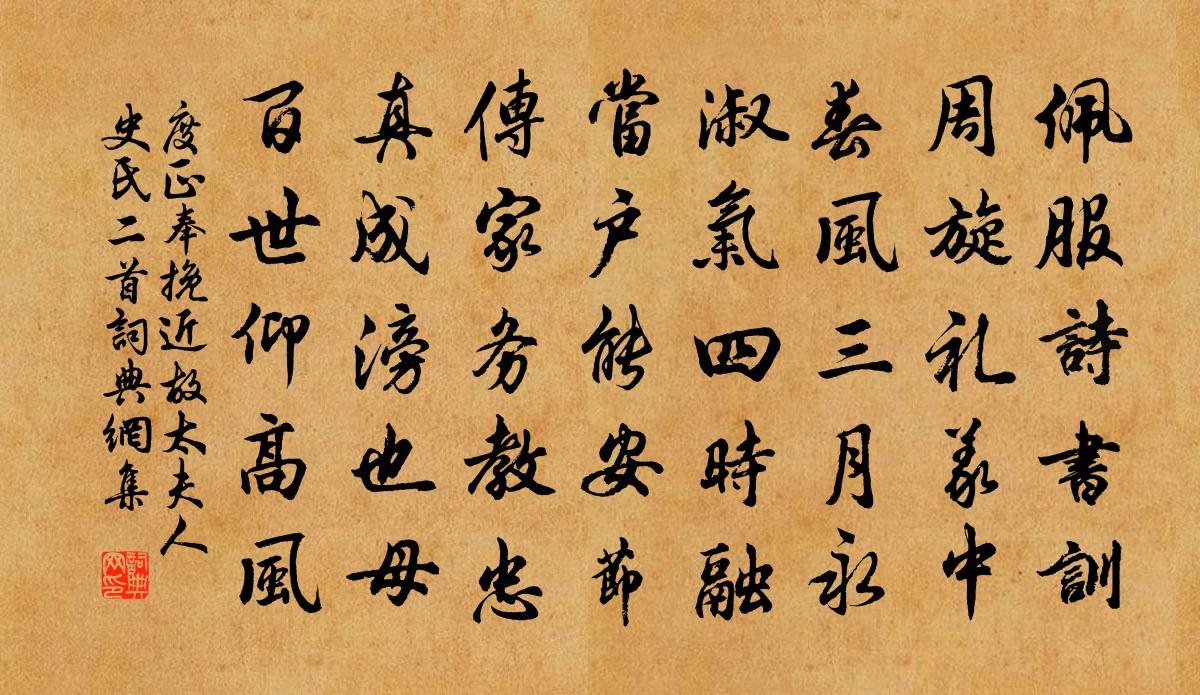 佩服詩書訓
周旋礼義中
春風三月永
淑氣四時融
當户能安節
傳家务教忠
真成滂也母
百世仰高風
度正奉挽近故太夫人
史氏二首詞典網集
詞典网印